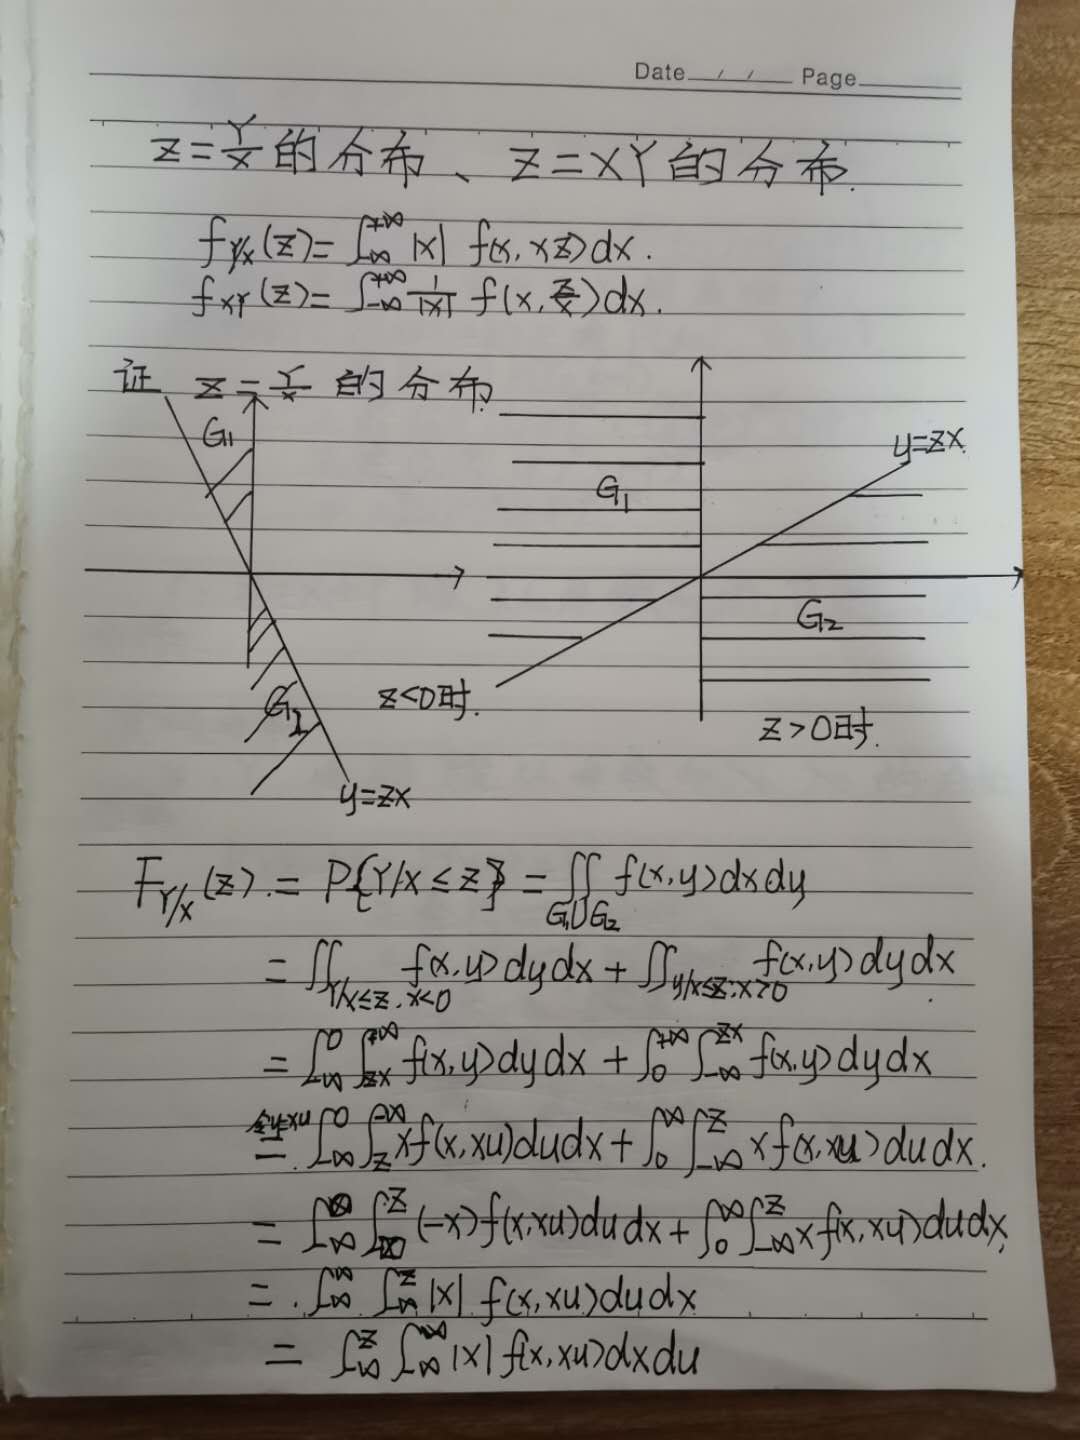 Date / / Page
Z=Y/X的分布、Z=XY的分布.
f_{Y/X}(z)=∫_{-∞}^{+∞}|x| f(x, xz)dx.
f_{XY}(z)=∫_{-∞}^{+∞} 1/|x| f(x, z/x)dx.
证 Z=Y/X 的分布.
G₁
y=zx
G₁
G₂
z<0时.
G₂
z>0时.
y=zx
F_{Y/X}(z).=P{Y/X≤z}=∬_{G₁∪G₂} f(x,y)dxdy
=∬_{Y/X≤z.x<0} f(x,y)dydx+∬_{y/x≤z;x>0} f(x,y)dydx
=∫_{-∞}^{0}∫_{zx}^{+∞}f(x,y)dydx+∫_{0}^{+∞}∫_{-∞}^{zx}f(x,y)dydx
令y=xu
=∫_{-∞}^{0}∫_{z}^{-∞}xf(x,xu)dudx+∫_{0}^{∞}∫_{-∞}^{z}xf(x,xu)dudx.
=∫_{-∞}∫^{z}(-x)f(x,xu)dudx+∫_{0}^{∞}∫_{-∞}^{z}xf(x,xu)dudx,
=.∫_{-∞}^{∞}∫_{-∞}^{z}|x| f(x,xu)dudx
=∫_{-∞}^{z}∫_{-∞}^{∞}|x| f(x,xu)dxdu